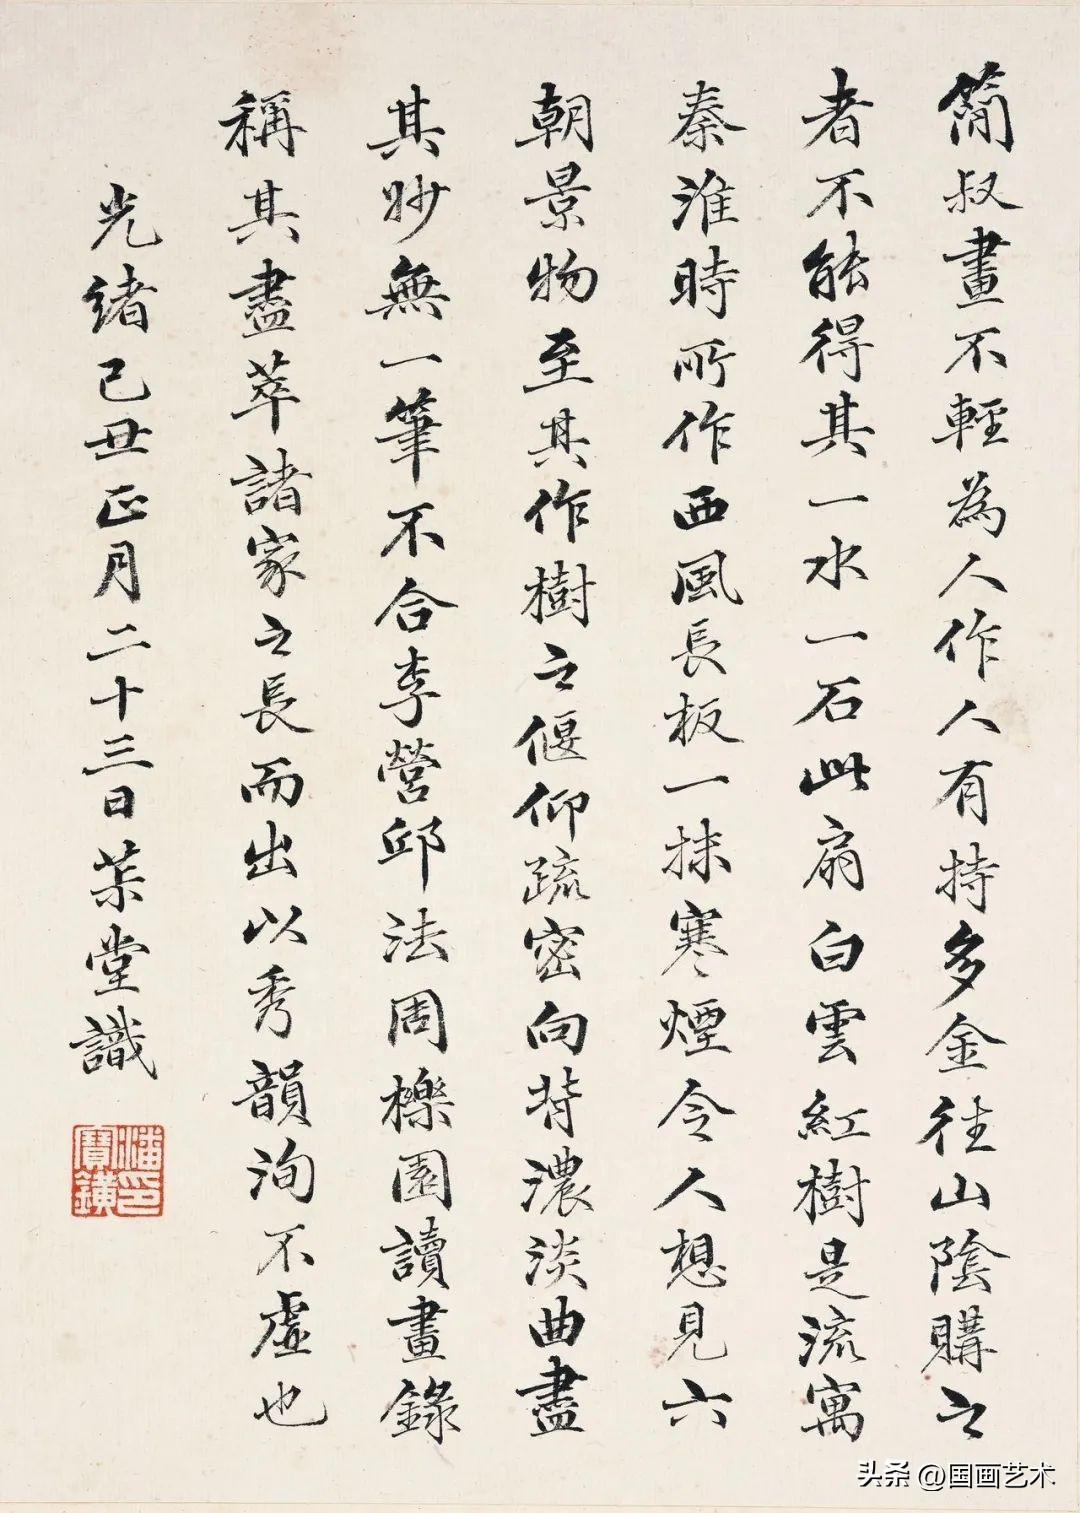 簡叔畫不輕為人作人有持多金往山陰購之
者不能得其一水一石此扇白雲紅樹是流寓
秦淮時所作西風長板一抹寒煙令人想見六
朝景物至其作樹之偃仰疏密向背濃淡曲盡
其妙無一筆不合李營邱法周櫟園讀畫錄
稱其盡萃諸家之長而出以秀韻洵不虛也
光緒己丑正月二十三日茮堂識
潘印寶鐄
头条 @国画艺术